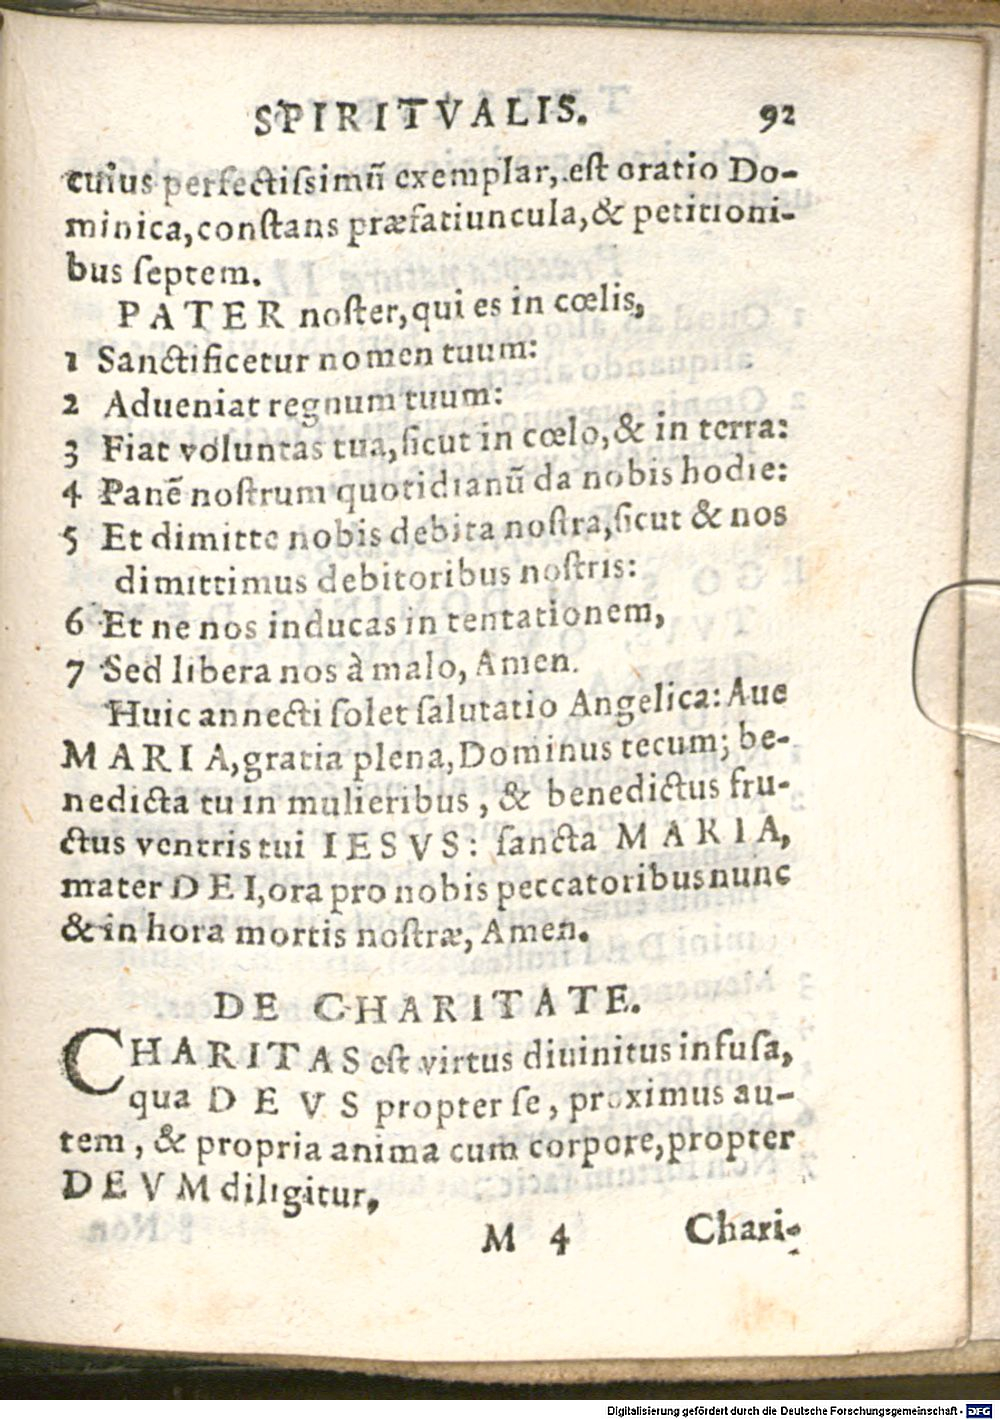 SPIRITVALIS. 92
cuius perfectissimũ exemplar, est oratio Do-
minica, constans præfatiuncula, & petitioni-
bus septem.
PATER noster, qui es in cœlis,
1 Sanctificetur nomen tuum:
2 Adueniat regnum tuum:
3 Fiat voluntas tua, sicut in cœlo, & in terra:
4 Panẽ nostrum quotidianũ da nobis hodie:
5 Et dimitte nobis debita nostra, sicut & nos
dimittimus debitoribus nostris:
6 Et ne nos inducas in tentationem,
7 Sed libera nos à malo, Amen.
Huic annecti solet salutatio Angelica: Aue
MARIA, gratia plena, Dominus tecum; be-
nedicta tu in mulieribus, & benedictus fru-
ctus ventris tui IESVS: sancta MARIA,
mater DEI, ora pro nobis peccatoribus nunc
& in hora mortis nostræ, Amen.
DE CHARITATE.
CHARITAS est virtus diuinitus infusa,
qua DEVS propter se, proximus au-
tem, & propria anima cum corpore, propter
DEVM diligitur,
M 4 Chari-
Digitalisierung gefördert durch die Deutsche Forschungsgemeinschaft - DFG